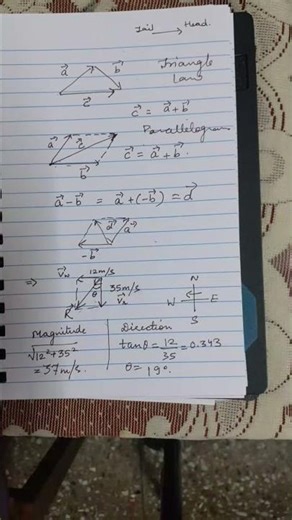 Tail → Head.
Triangle
Law
a⃗ b⃗
c⃗
c⃗ = a⃗ + b⃗
Parallelogram
a⃗ c⃗
b⃗
c⃗ = a⃗ + b⃗.
a⃗ - b⃗ = a⃗ + (-b⃗) = d⃗
d⃗ a⃗
-b⃗
⇒ V⃗w 12m/s
θ 35m/s
R⃗
N
W E
S
Magnitude
√12²+35²
= 37m/s.
Direction
tanθ = 12/35 = 0.343
θ = 19°.